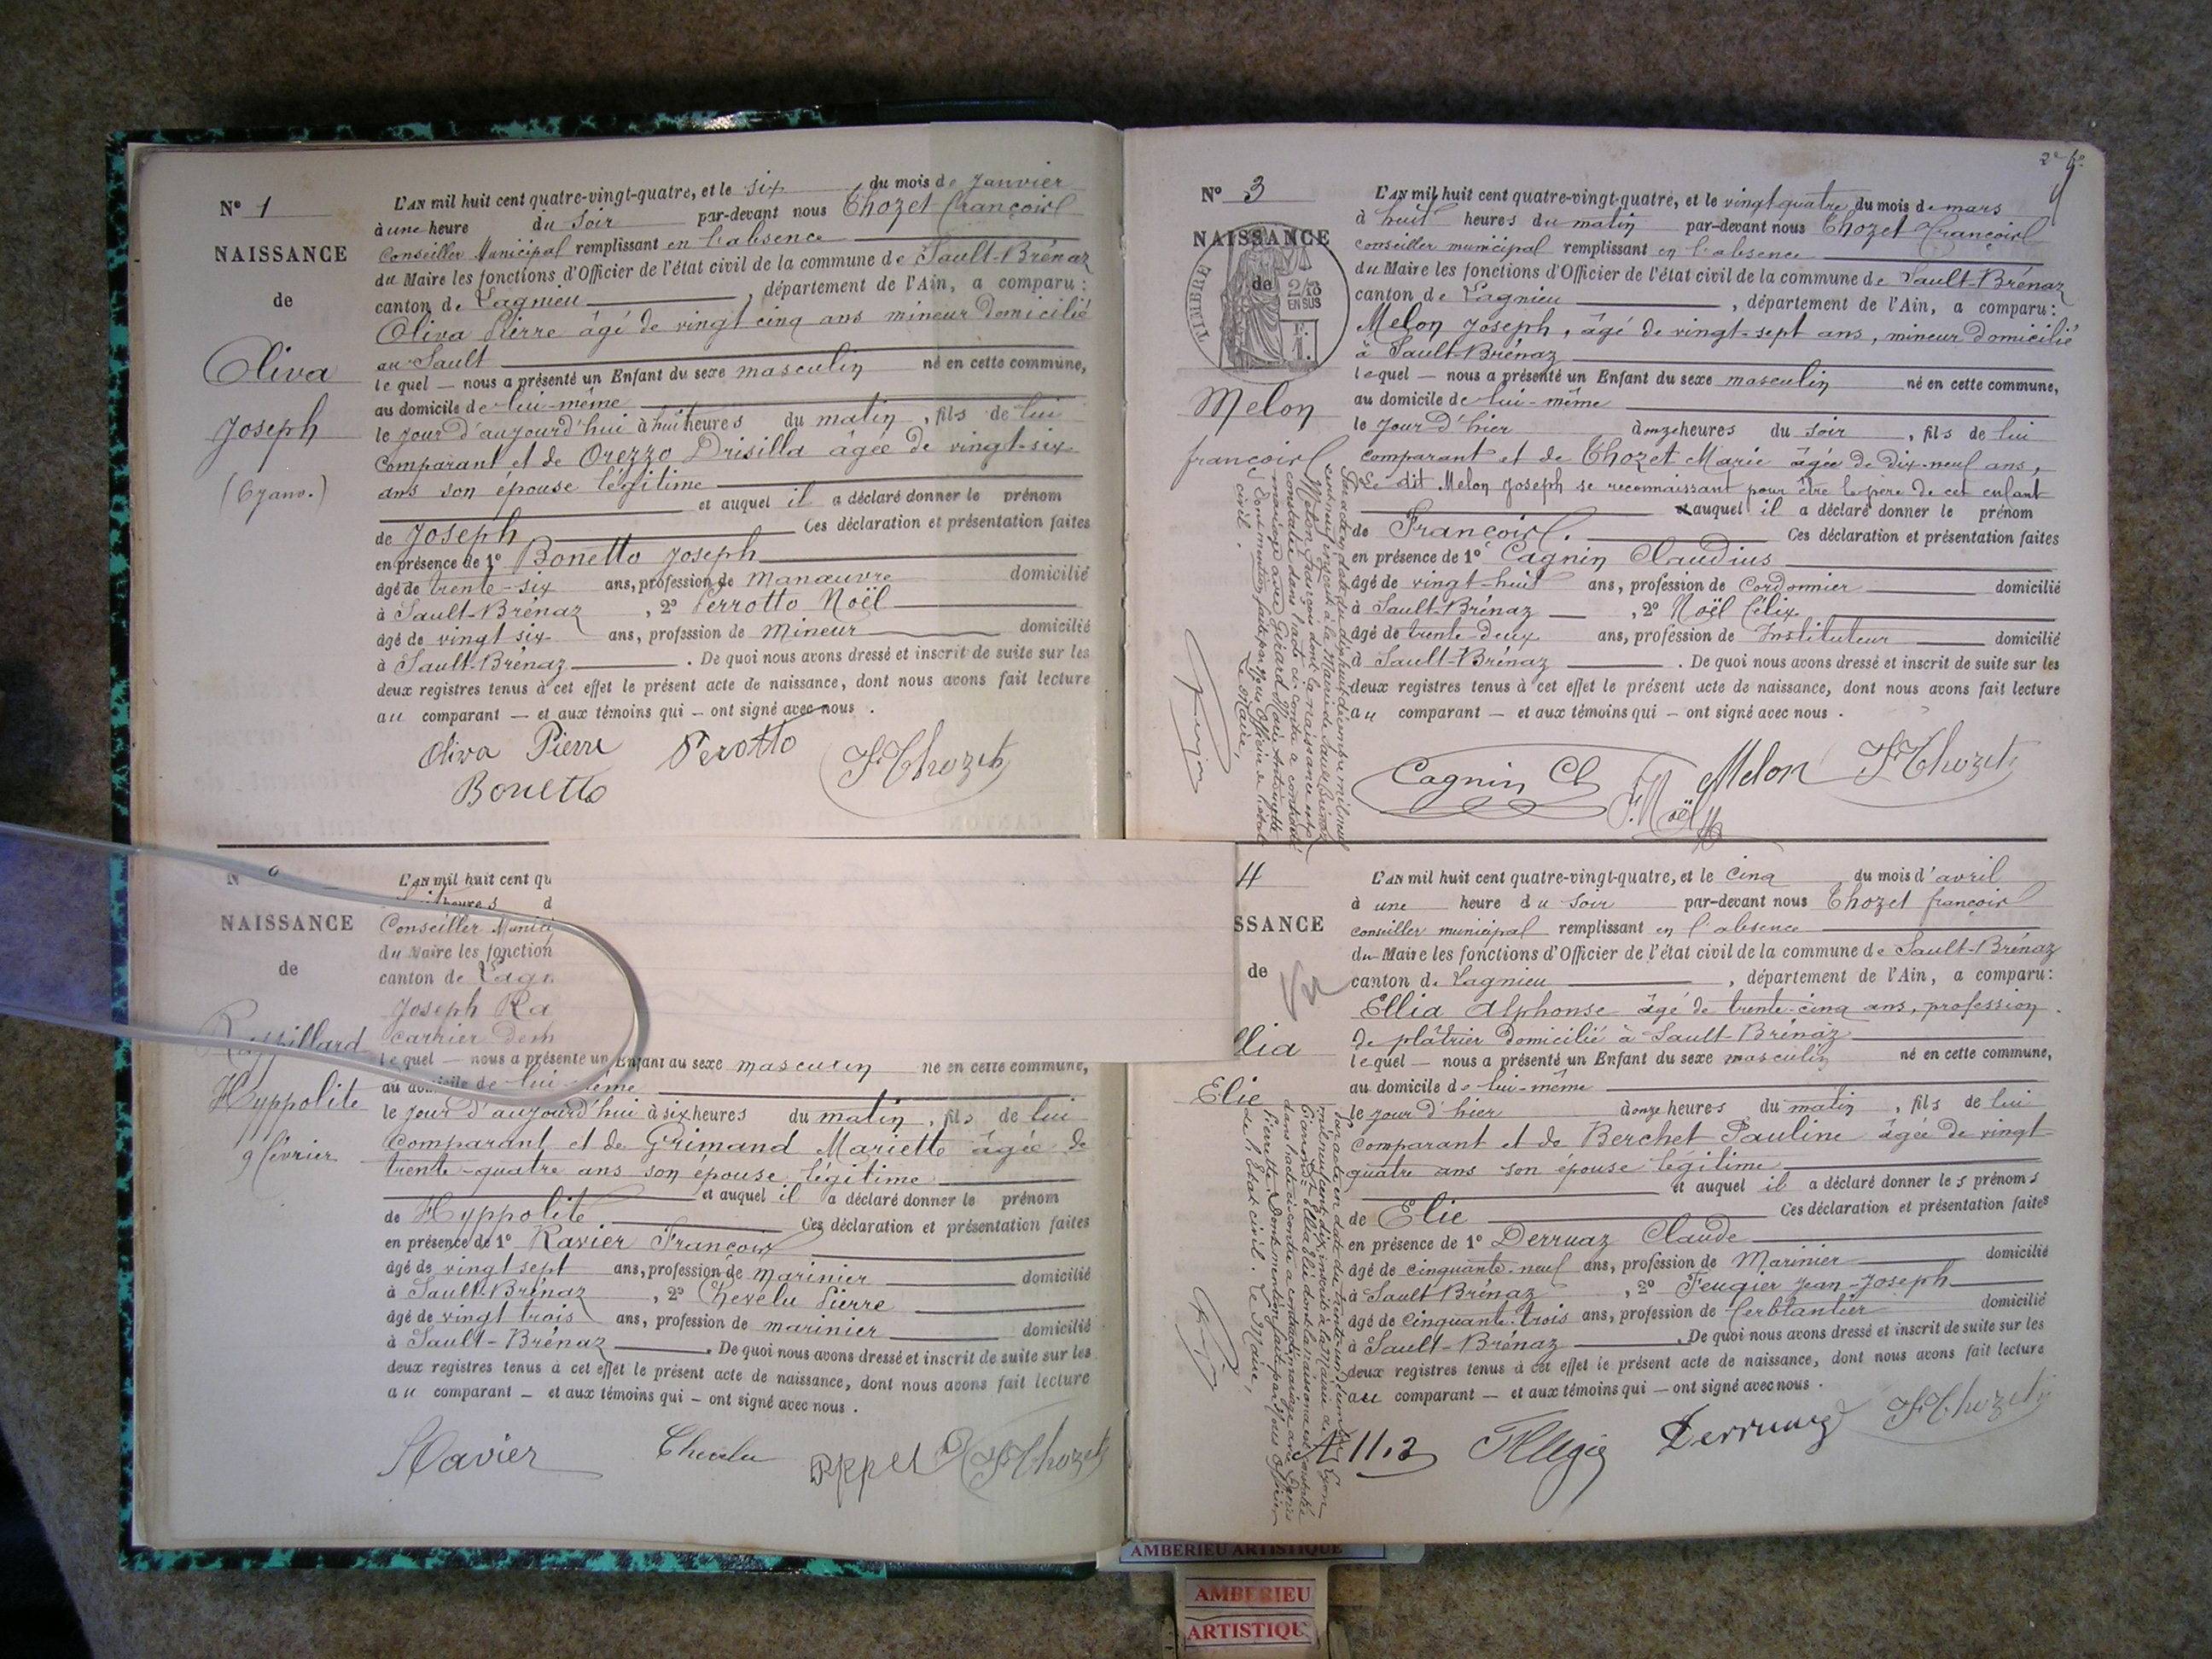 Nº 1
NAISSANCE
de
Oliva
Joseph
(6 janv.)
L'AN mil huit cent quatre-vingt-quatre, et le six du mois de Janvier
à une heure du soir par-devant nous Chozet François
Conseiller Municipal remplissant en l'absence
du Maire les fonctions d'Officier de l'état civil de la commune de Sault-Brénaz
canton de Lagnieu, département de l'Ain, a comparu :
Oliva Pierre âgé de vingt cinq ans mineur domicilié
au Sault
lequel — nous a présenté un Enfant du sexe masculin né en cette commune,
au domicile de lui-même
le jour d'aujourd'hui à huit heures du matin, fils de lui
comparant et de Orezzo Drisilla âgée de vingt-six
ans son épouse légitime
et auquel il a déclaré donner le prénom
de Joseph Ces déclaration et présentation faites
en présence de 1º Bonetto Joseph
âgé de trente-six ans, profession de Manœuvre domicilié
à Sault-Brénaz, 2º Perrotto Noël
âgé de vingt six ans, profession de Mineur domicilié
à Sault-Brénaz. De quoi nous avons dressé et inscrit de suite sur les
deux registres tenus à cet effet le présent acte de naissance, dont nous avons fait lecture
au comparant — et aux témoins qui — ont signé avec nous.
Oliva Pierre Perotto F. Chozet
Bonetto
NAISSANCE
de
Rappillard
Hyppolite
9 février
L'AN mil huit cent qu
heures d
Conseiller Munici
du Maire les fonction
canton de Lagn
Joseph Ra
carrier dem
lequel — nous a présenté un Enfant du sexe masculin né en cette commune,
au domicile de lui-même
le jour d'aujourd'hui à six heures du matin, fils de lui
comparant et de Grimand Mariette âgée de
trente-quatre ans son épouse légitime
et auquel il a déclaré donner le prénom
de Hyppolite Ces déclaration et présentation faites
en présence de 1º Ravier François
âgé de vingt sept ans, profession de marinier domicilié
à Sault-Brénaz, 2º Chevelu Pierre
âgé de vingt trois ans, profession de marinier domicilié
à Sault-Brénaz. De quoi nous avons dressé et inscrit de suite sur les
deux registres tenus à cet effet le présent acte de naissance, dont nous avons fait lecture
au comparant — et aux témoins qui — ont signé avec nous.
Ravier Chevelu F. Chozet
Nº 3
NAISSANCE
de
TIMBRE
EN SUS
Melon
François
L'AN mil huit cent quatre-vingt-quatre, et le vingt quatre du mois de mars
à huit heures du matin par-devant nous Chozet François
conseiller municipal remplissant en l'absence
du Maire les fonctions d'Officier de l'état civil de la commune de Sault-Brénaz
canton de Lagnieu, département de l'Ain, a comparu :
Melon Joseph, âgé de vingt-sept ans, mineur domicilié
à Sault-Brénaz
lequel — nous a présenté un Enfant du sexe masculin né en cette commune,
au domicile de lui-même
le jour d'hier à onze heures du soir, fils de lui
comparant et de Chozet Marie âgée de dix-neuf ans,
Le dit Melon Joseph se reconnaissant pour être le père de cet enfant
auquel il a déclaré donner le prénom
de François. Ces déclaration et présentation faites
en présence de 1º Cagnin Claudius
âgé de vingt-huit ans, profession de Cordonnier domicilié
à Sault-Brénaz, 2º Noël Félix
âgé de trente-deux ans, profession de Instituteur domicilié
à Sault-Brénaz. De quoi nous avons dressé et inscrit de suite sur les
deux registres tenus à cet effet le présent acte de naissance, dont nous avons fait lecture
au comparant — et aux témoins qui — ont signé avec nous.
Cagnin Cl F. Noël Melon F. Chozet
4
SSANCE
de
llia
Elie
L'AN mil huit cent quatre-vingt-quatre, et le cinq du mois d'avril
à une heure du soir par-devant nous Chozet François
conseiller municipal remplissant en l'absence
du Maire les fonctions d'Officier de l'état civil de la commune de Sault-Brénaz
canton de Lagnieu, département de l'Ain, a comparu :
Ellia Alphonse âgé de trente-cinq ans, profession
de plâtrier domicilié à Sault-Brénaz
lequel — nous a présenté un Enfant du sexe masculin né en cette commune,
au domicile de lui-même
le jour d'hier à onze heures du matin, fils de lui
comparant et de Berchet Pauline âgée de vingt
quatre ans son épouse légitime
et auquel il a déclaré donner les prénoms
de Elie Ces déclaration et présentation faites
en présence de 1º Derruaz Claude
âgé de cinquante-neuf ans, profession de Marinier domicilié
à Sault Brénaz, 2º Feugier Jean-Joseph
âgé de cinquante-trois ans, profession de ferblantier domicilié
à Sault-Brénaz. De quoi nous avons dressé et inscrit de suite sur les
deux registres tenus à cet effet le présent acte de naissance, dont nous avons fait lecture
au comparant — et aux témoins qui — ont signé avec nous.
Derruaz F. Chozet
AMBERIEU ARTISTIQUE
AMBERIEU
ARTISTIQU